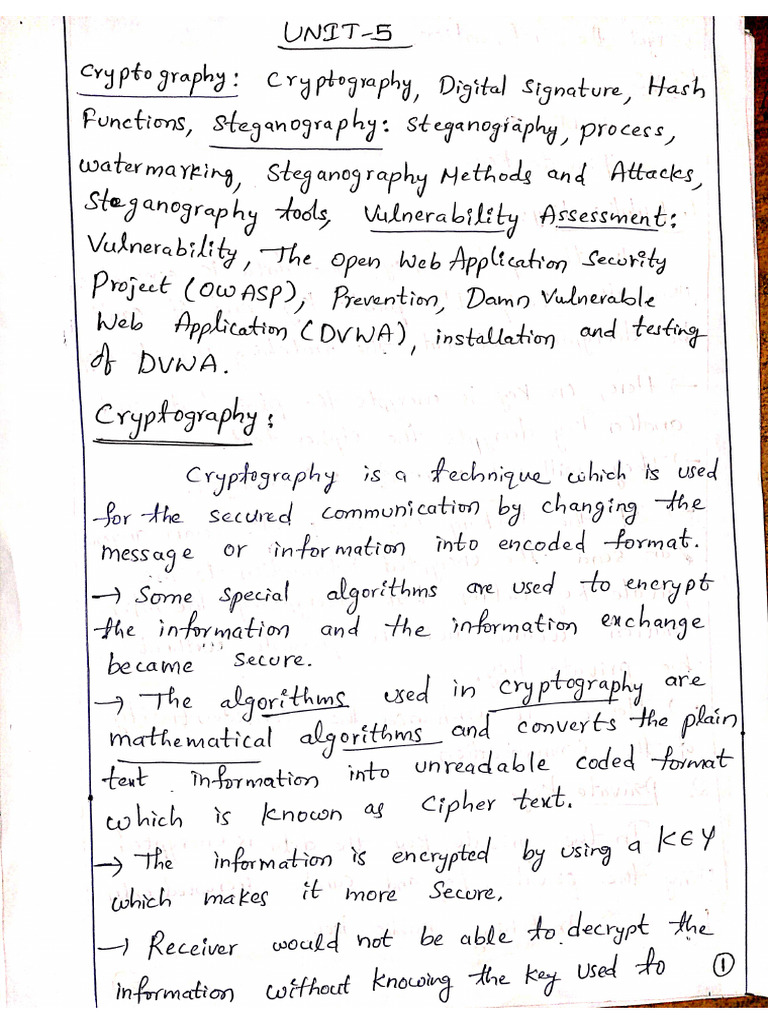 UNIT-5
Cryptography: Cryptography, Digital Signature, Hash
Functions, Steganography: Steganography, process,
watermarking, Steganography Methods and Attacks,
Steganography tools, Vulnerability Assessment:
Vulnerability, The Open Web Application Security
Project (OWASP), Prevention, Damn Vulnerable
Web Application (DVWA), installation and testing
of DVWA.
Cryptography:
Cryptography is a technique which is used
for the secured communication by changing the
message or information into encoded format.
→ Some special algorithms are used to encrypt
the information and the information exchange
became secure.
→ The algorithms used in cryptography are
mathematical algorithms and converts the plain
text information into unreadable coded format
which is known as Cipher text.
→ The information is encrypted by using a KEY
which makes it more Secure.
→ Receiver would not be able to decrypt the
information without knowing the key used to
1